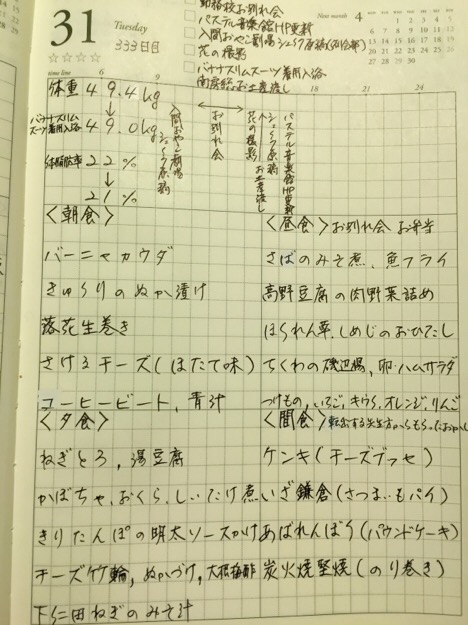 31
Tuesday
333日目
お別れ会
パステル音楽館HP更新
入間おやこ劇場シェークス原稿
花の撮影
バナナスリムスーツ着用入浴
お土産渡し
Next month 4
time line 6 9 18 21 24
体重 49.4kg
↓
バナナスリムスーツ着用入浴 49.0kg
体脂肪率 22%
↓
21%
入間おやこ劇場
お別れ会
花の撮影
お土産渡し
パステル音楽館HP更新
<朝食>
バーニャカウダ
きゅうりのぬか漬け
落花生巻き
さけるチーズ(ほたて味)
コーヒービート、青汁
<昼食>お別れ会 お弁当
さばのみそ煮、魚フライ
高野豆腐の肉野菜詰め
ほうれん草、しめじのおひたし
ちくわの磯辺揚、卵・ハムサラダ
つけもの、いちご、キウイ、オレンジ、りんご
<夕食>
ねぎとろ、湯豆腐
かぼちゃ、おくら、しいたけ煮
きりたんぽの明太ソースかけ
チーズ竹輪、ぬかづけ、大根梅酢
下仁田ねぎのみそ汁
<間食>転出する先生方からもらったおかし
ケンキ(チーズブッセ)
いざ鎌倉(さつまいもパイ)
あばれんぼう(パウンドケーキ)
炭火焼堅焼(のり巻き)